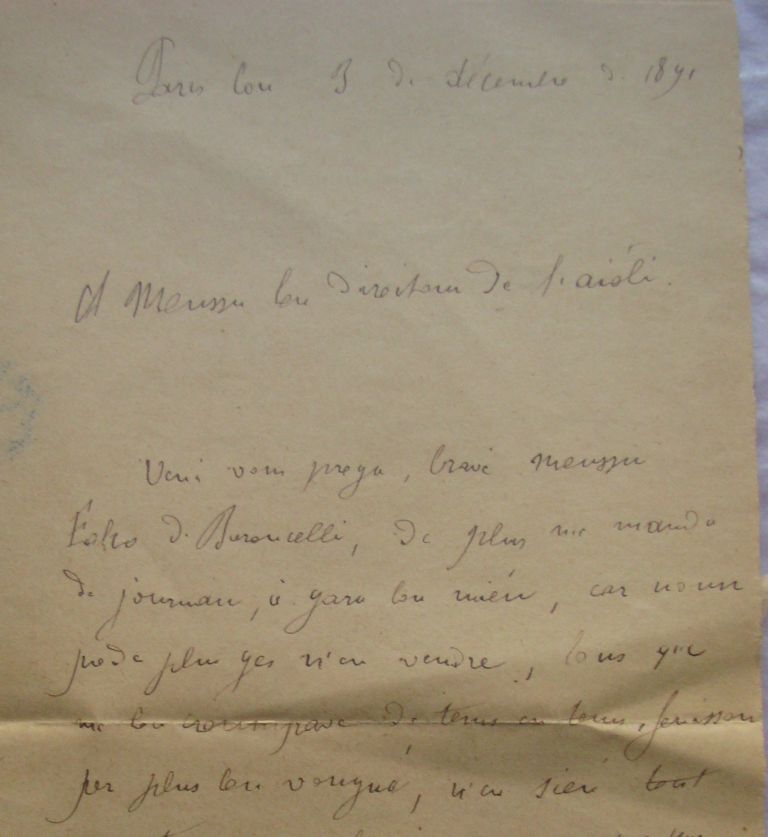 Paris lou 3 de décembre de 1891
A Moussu lou direitour de l'aióli.
Veni vous prega, brave moussu
Folco de Baroncelli, de plus me manda
de journau, à gara lou miéu, car noun
pode plus ges n'en vendre, lous que
me lou croumpave de tems en tems, fenisson
per plus lou vougué, n'en sieu tout